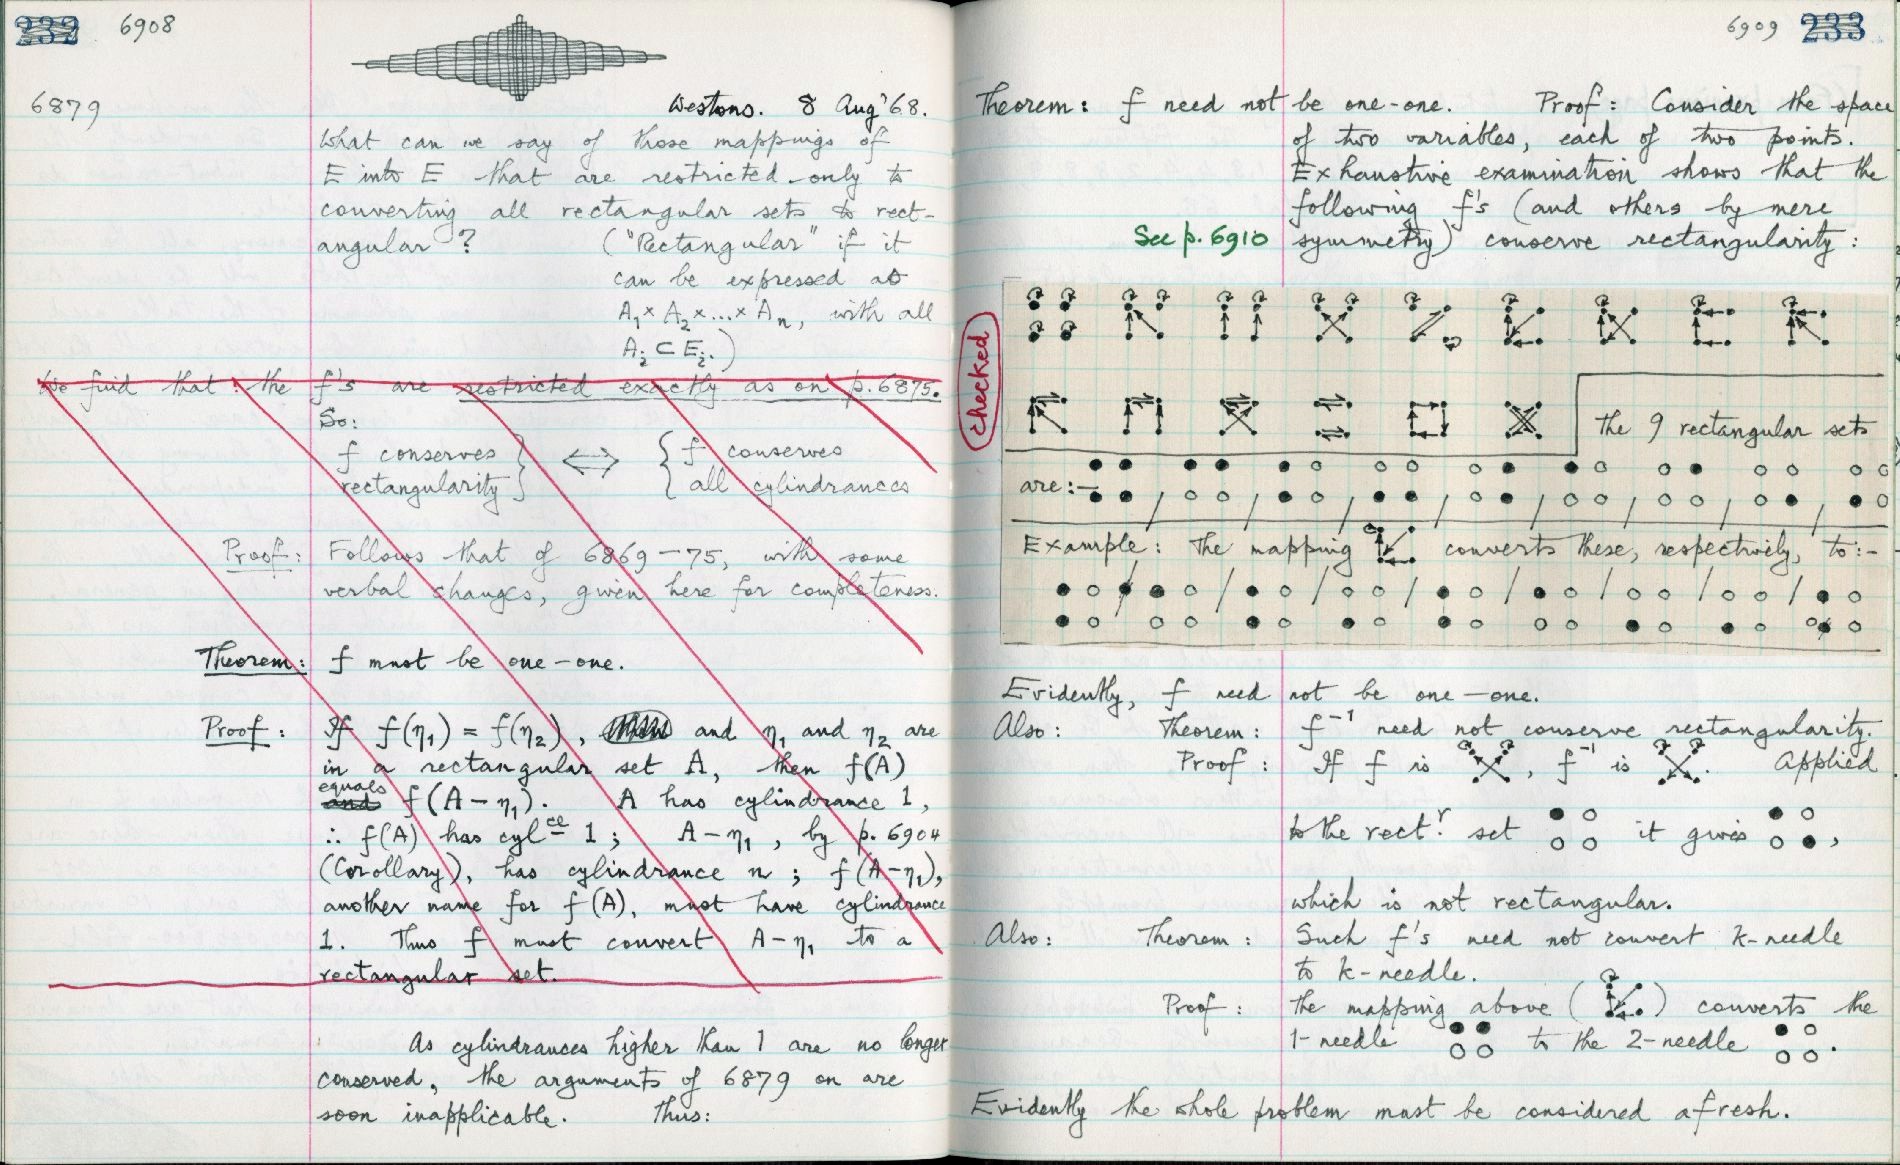 232 6908
6879
Westons. 8 Aug '68.
What can we say of those mappings of
E into E that are restricted only to
converting all rectangular sets to rect-
angular? ("Rectangular" if it
can be expressed as
A₁ × A₂ × ... × Aₙ, with all
Aᵢ ⊂ Eᵢ.)
We find that: the f's are restricted exactly as on p. 6875.
So:
f conserves rectangularity } ⟺ { f conserves all cylindrances
Proof: Follows that of 6869–75, with some
verbal changes, given here for completeness.
Theorem: f must be one-one.
Proof: If f(η₁) = f(η₂), and η₁ and η₂ are
in a rectangular set A, then f(A)
equals f(A – η₁). A has cylindrance 1,
∴ f(A) has cylᶜᵉ 1; A – η₁, by p. 6904
(Corollary), has cylindrance n; f(A – η₁),
another name for f(A), must have cylindrance
1. Thus f must convert A – η₁ to a
rectangular set.
As cylindrances higher than 1 are no longer
conserved, the arguments of 6879 on are
soon inapplicable. Thus:
6909 233
Theorem: f need not be one-one. Proof: Consider the space
of two variables, each of two points.
Exhaustive examination shows that the
following f's (and others by mere
See p. 6910 symmetry) conserve rectangularity:
checked
The 9 rectangular sets
are:–
Example: The mapping converts these, respectively, to:–
Evidently, f need not be one-one.
Also: Theorem: f⁻¹ need not conserve rectangularity.
Proof: If f is , f⁻¹ is . Applied
to the rectʳ. set it gives ,
which is not rectangular.
Also: Theorem: Such f's need not convert k-needle
to k-needle.
Proof: The mapping above ( ) converts the
1-needle to the 2-needle .
Evidently the whole problem must be considered afresh.